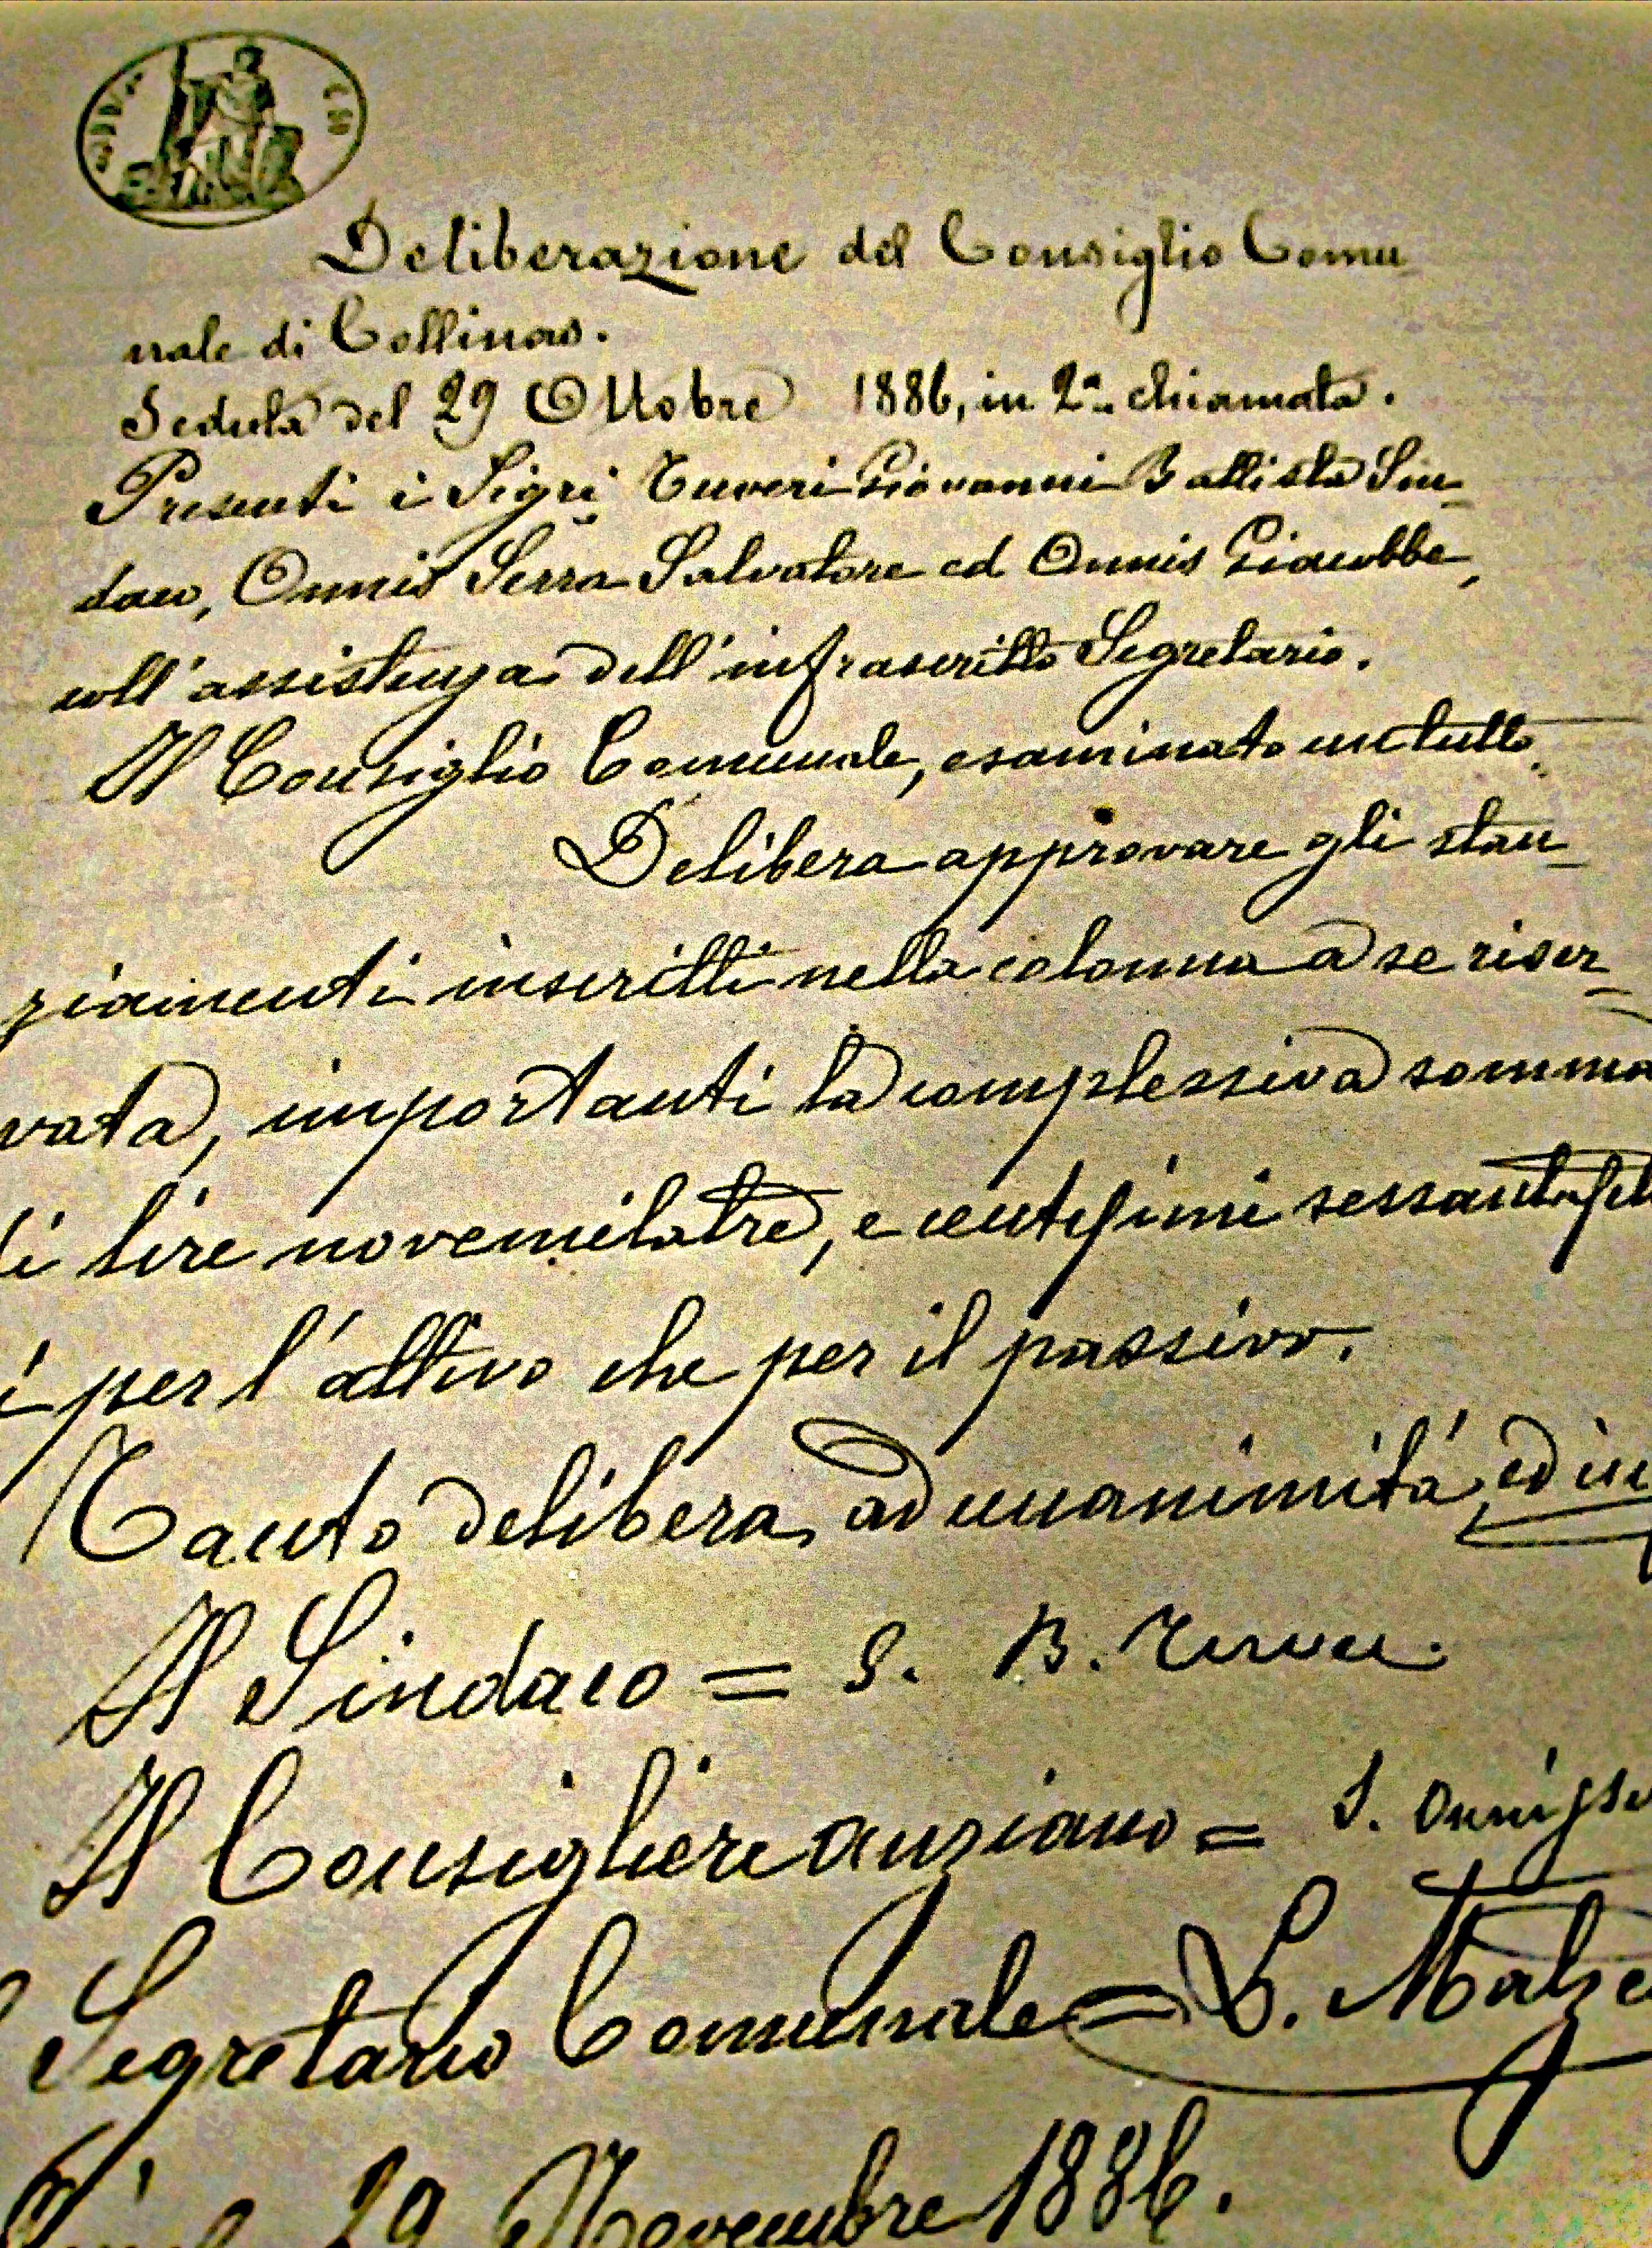 Deliberazione del Consiglio Comu
nale di Collinas.
Seduta del 29 Ottobre 1886, in 2ª chiamata.
Presenti i Sigri Tuveri Giovanni Battista Sin-
daco, Onnis Serra Salvatore ed Onnis Giacobbe,
coll'assistenza dell'infrascritto Segretario.
Il Consiglio Comunale, esaminato il tutto,
Delibera approvare gli stan-
ziamenti inscritti nella colonna a se riser-
vata, importanti la complessiva somma
di lire novemilatre, e centesimi
per l'attivo che per il passivo.
Tanto delibera, ad unanimità, ed in
Il Sindaco = G. B. Tuveri.
Il Consigliere anziano = S. Onnis
Segretario Comunale = L.
29 Novembre 1886.